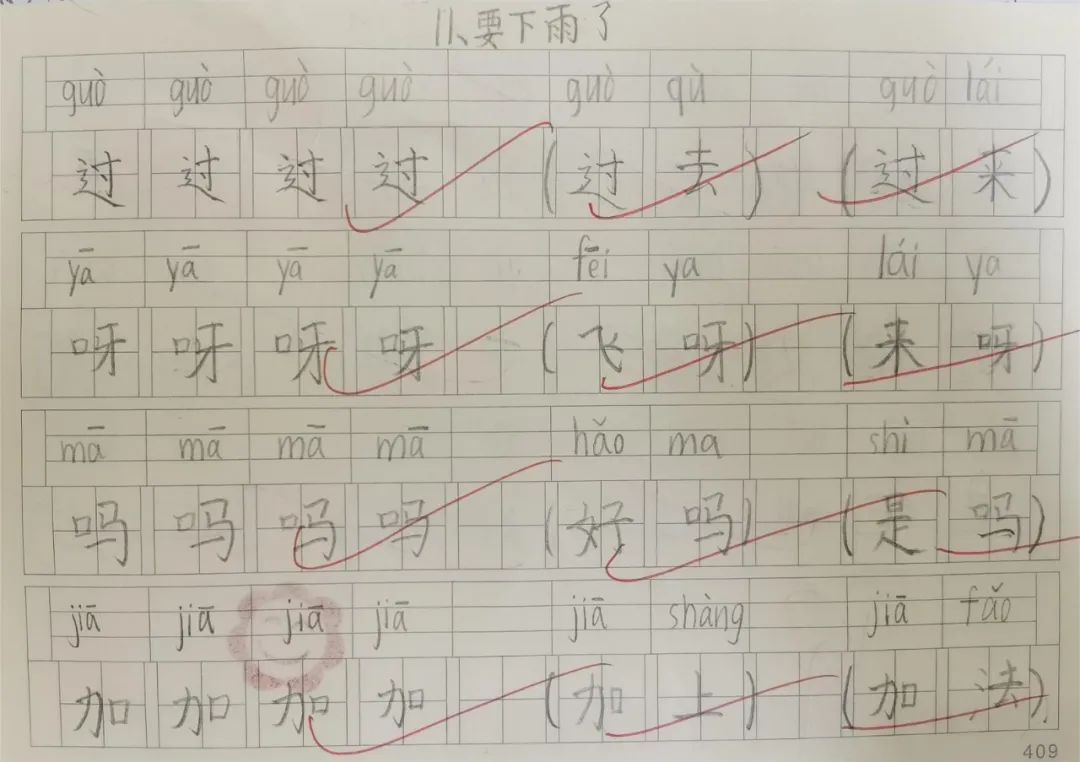 11、要下雨了
guò guò guò guò guò qù guò lái
过 过 过 过 (过 去) (过 来)
yā yā yā yā fēi ya lái ya
呀 呀 呀 呀 (飞 呀) (来 呀)
mā mā mā mā hǎo ma shì mā
吗 吗 吗 吗 (好 吗) (是 吗)
jiā jiā jiā jiā jiā shàng jiā fǎo
加 加 加 加 (加 上) (加 法)
409